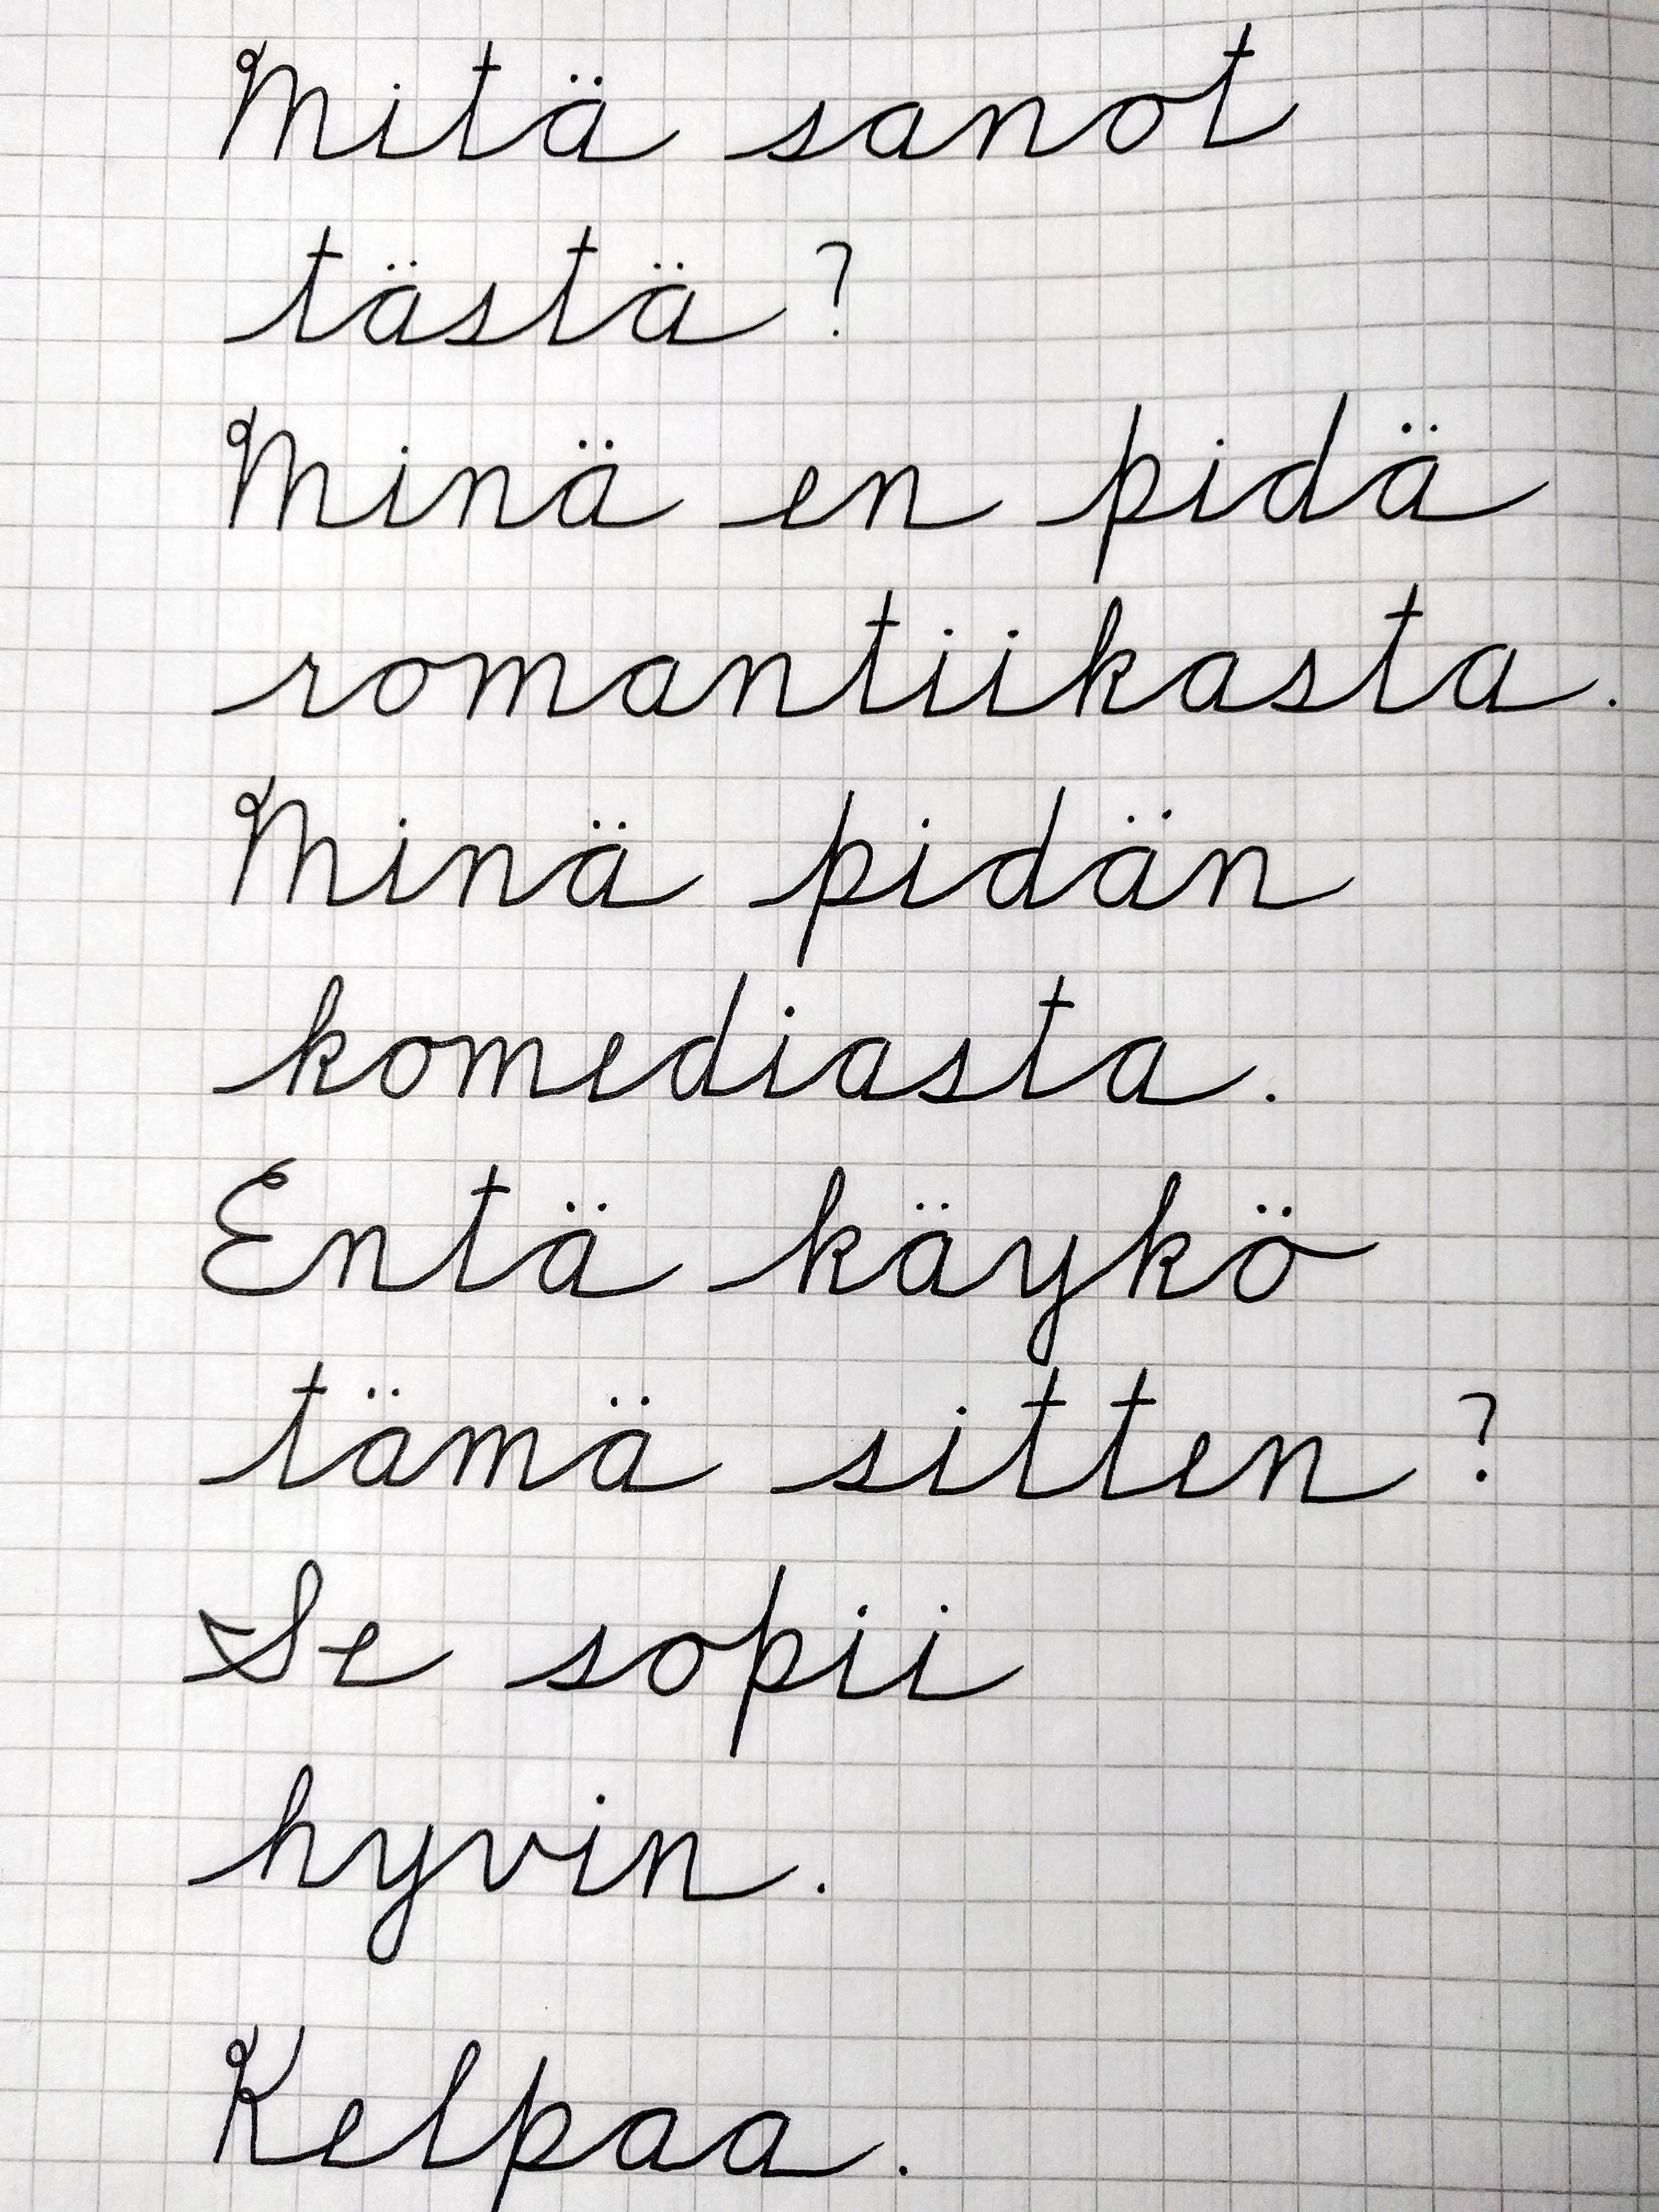 Mitä sanot
tästä?
Minä en pidä
romantiikasta.
Minä pidän
komediasta.
Entä käykö
tämä sitten?
Se sopii
hyvin.
Kelpaa.